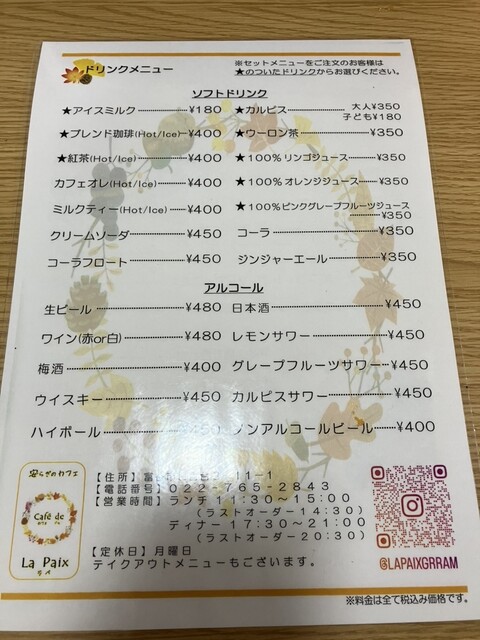 ドリンクメニュー
※セットメニューをご注文のお客様は
★のついたドリンクからお選びください。
ソフトドリンク
★アイスミルク ¥180
★ブレンド珈琲(Hot/Ice) ¥400
★紅茶(Hot/Ice) ¥400
カフェオレ(Hot/Ice) ¥400
ミルクティー(Hot/Ice) ¥400
クリームソーダ ¥450
コーラフロート ¥450
★カルピス 大人¥350
子ども¥180
★ウーロン茶 ¥350
★100%リンゴジュース ¥350
★100%オレンジジュース ¥350
★100%ピンクグレープフルーツジュース
¥350
コーラ ¥350
ジンジャーエール ¥350
アルコール
生ビール ¥480
ワイン(赤or白) ¥480
梅酒 ¥400
ウイスキー ¥450
ハイボール
日本酒 ¥450
レモンサワー ¥450
グレープフルーツサワー ¥450
カルピスサワー ¥450
ノンアルコールビール ¥400
安らぎのカフェ
Café de
カフェ ド
La Paix
ラ ペ
【住所】富 11-1
【電話番号】022-765-2843
【営業時間】ランチ 11:30～15:00
(ラストオーダー14:30)
ディナー 17:30～21:00
(ラストオーダー20:30)
【定休日】月曜日
テイクアウトメニューもございます。
@LAPAIXGRRAM
※料金は全て税込み価格です。